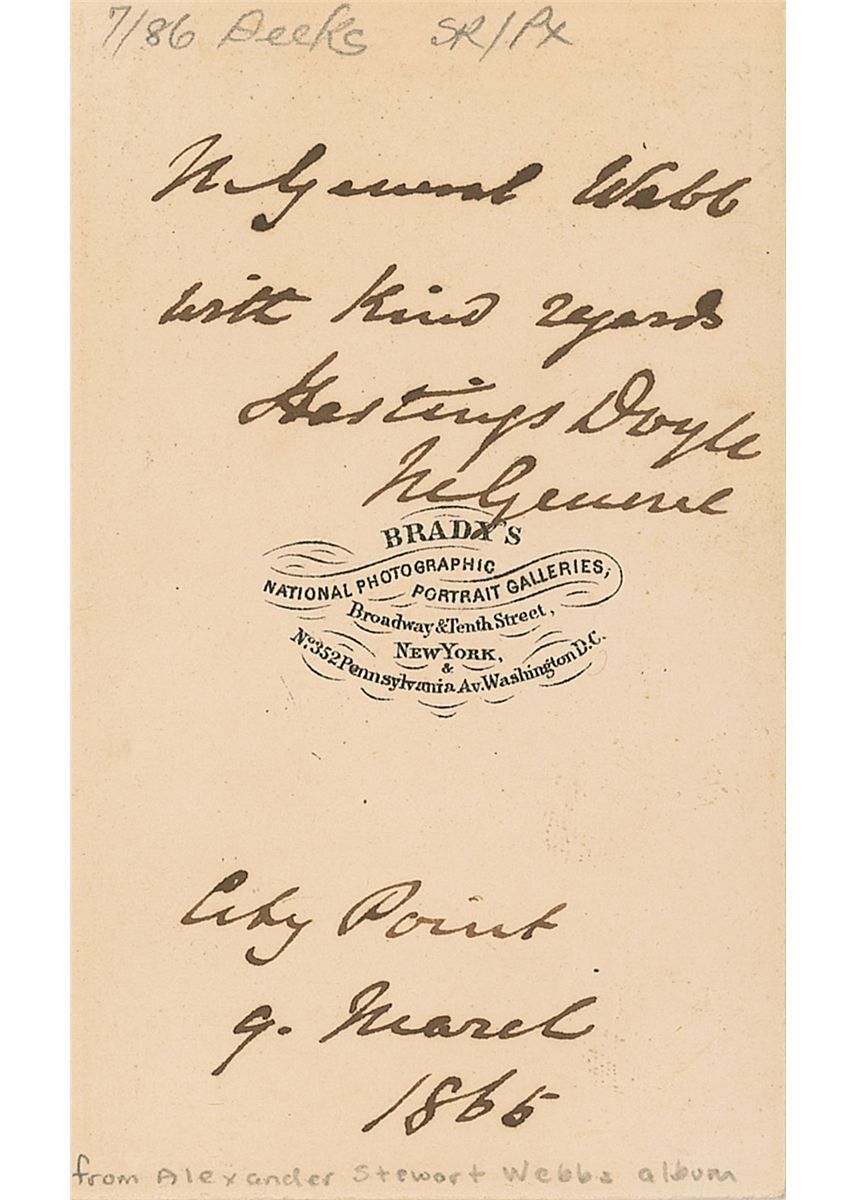 7/86 Deeks SR/Px
M. General Webb
with kind regards
Hastings Doyle
M General
BRADY'S
NATIONAL PHOTOGRAPHIC
PORTRAIT GALLERIES,
Broadway & Tenth Street,
NEW YORK,
&
No. 352 Pennsylvania Av. Washington D.C.
City Point
9. March
1865
from Alexander Stewart Webbs album